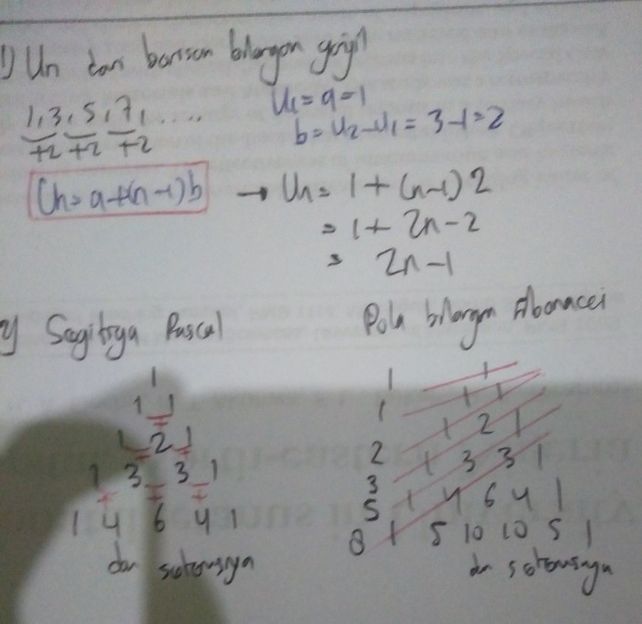 1) Un dari barisan bilangan ganjil
1, 3, 5, 7, .....
+2 +2 +2
U1 = a = 1
b = U2 - U1 = 3 - 1 = 2
Un = a + (n-1)b → Un = 1 + (n-1) 2
= 1 + 2n - 2
= 2n - 1
2) Segitiga Pascal
1
1 1
1 2 1
1 3 3 1
1 4 6 4 1
dan seterusnya
Pola bilangan Fibonacci
1 1
1 1 1
2 1 2 1
3 1 3 3 1
5 1 4 6 4 1
8 1 5 10 10 5 1
dan seterusnya